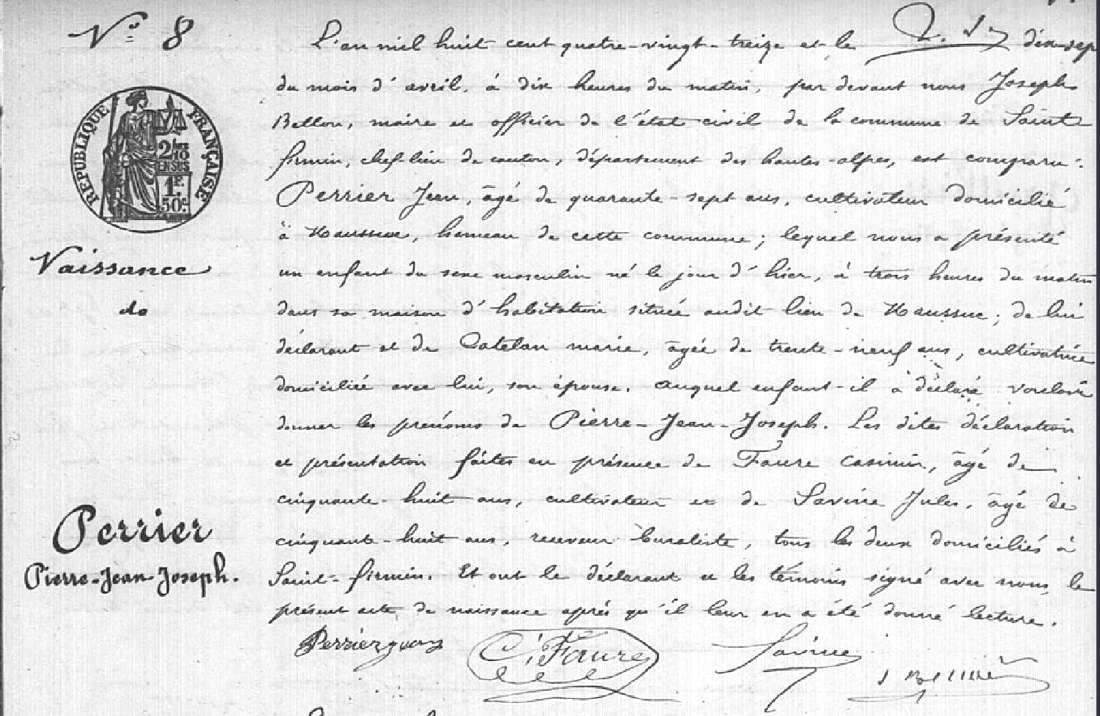 N° 8
RÉPUBLIQUE FRANÇAISE
2/10 EN SUS
1F. 50c.
Naissance
de
Perrier
Pierre-Jean-Joseph.
L'an mil huit cent quatre-vingt-treize et le dix-sep
du mois d'avril, à dix heures du matin, par devant nous Joseph
Bellon, maire et officier de l'état civil de la commune de Saint
firmin, chef-lieu de canton, département des hautes-alpes, est comparu:
Perrier Jean, âgé de quarante-sept ans, cultivateur domicilié
à, hameau de cette commune; lequel nous a présenté
un enfant du sexe masculin né le jour d'hier, à trois heures du matin
dans sa maison d'habitation située audit lieu de; de lui
déclarant et de Catelan marie, âgée de trente-neuf ans, cultivatrice
domiciliée avec lui, son épouse. auquel enfant il a déclaré vouloir
donner les prénoms de Pierre-Jean-Joseph. Les dites déclaration
et présentation faites en présence de Faure Casimir, âgé de
cinquante-huit ans, cultivateur et de Savine Jules, âgé de
cinquante-huit ans, receveur buraliste, tous les deux domiciliés à
Saint-firmin. Et ont le déclarant et les témoins signé avec nous le
présent acte de naissance après qu'il leur en a été donné lecture.
Perrier jean
C. Faure
Savine